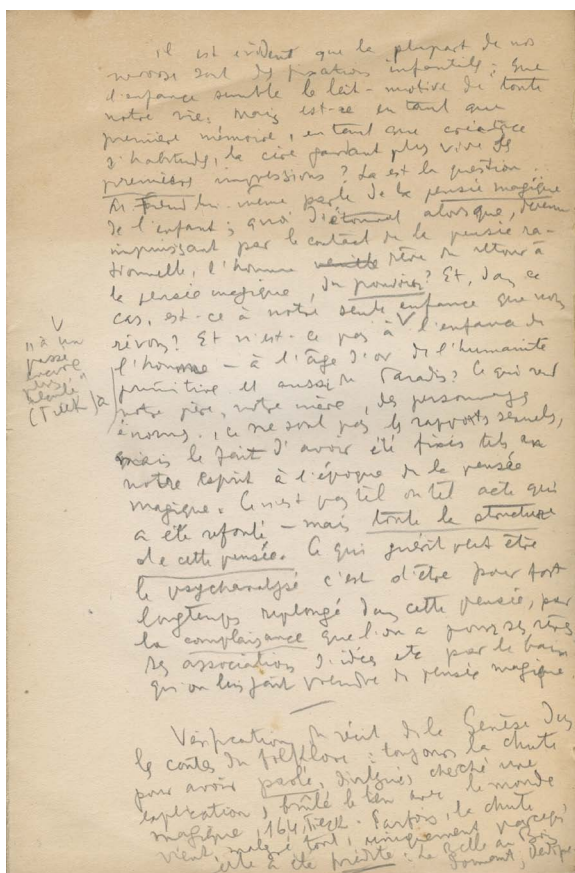 Il est évident que la plupart de nos
névroses sont des fixations infantiles ; que
l'enfance semble le leit-motive de toute
notre vie. Mais est-ce en tant que
première mémoire, en tant que créatrice
d'habitudes, la cire gardant plus vive les
premières impressions ? Là est la question.
Freud lui-même parle de la pensée magique
de l'enfant ; quoi d'étonnant alors que, devenu
impuissant par le contact de la pensée ra-
tionnelle, l'homme rêve du retour à
la pensée magique, du pouvoir ? Et, dans ce
cas, est-ce à notre seule enfance que nous
rêvons ? Et n'est-ce pas à l'enfance de
"à un
passé
encore
plus
(Tieck)
l'homme – à l'âge d'or de l'humanité
primitive et aussi du Paradis ? Ce qui rend
notre père, notre mère, des personnages
énormes, ce ne sont pas les rapports sexuels,
mais le fait d'avoir été fixés tels en
notre esprit à l'époque de la pensée
magique. Ce n'est pas tel ou tel acte qui
a été refoulé – mais toute la structure
de cette pensée. Ce qui guérit peut être
le psychanalysé c'est d'être pour fort
longtemps replongé dans cette pensée, par
la complaisance que l'on a pour ses rêves
ses associations d'idées etc par le bain
qu'on lui fait prendre de pensée magique.
Vérification du récit de la Genèse dans
les contes du folklore : toujours la chute
pour avoir parlé, divulgué, cherché une
explication, brûlé le lien avec le monde
magique, 164, Tieck. Parfois, la chute
vient, malgré tout, uniquement parce qu'
elle a été prédite : La Belle au Bois
Dormant, Oedipe